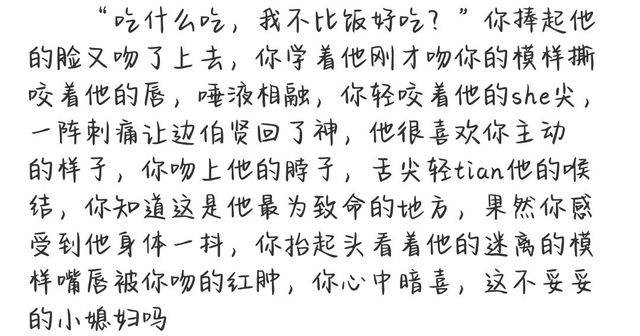 “吃什么吃，我不比饭好吃？”你捧起他
的脸又吻了上去，你学着他刚才吻你的模样撕
咬着他的唇，唾液相融，你轻咬着他的she尖，
一阵刺痛让边伯贤回了神，他很喜欢你主动
的样子，你吻上他的脖子，舌尖轻tian他的喉
结，你知道这是他最为致命的地方，果然你感
受到他身体一抖，你抬起头看着他的迷离的模
样嘴唇被你吻的红肿，你心中暗喜，这不妥妥
的小媳妇吗